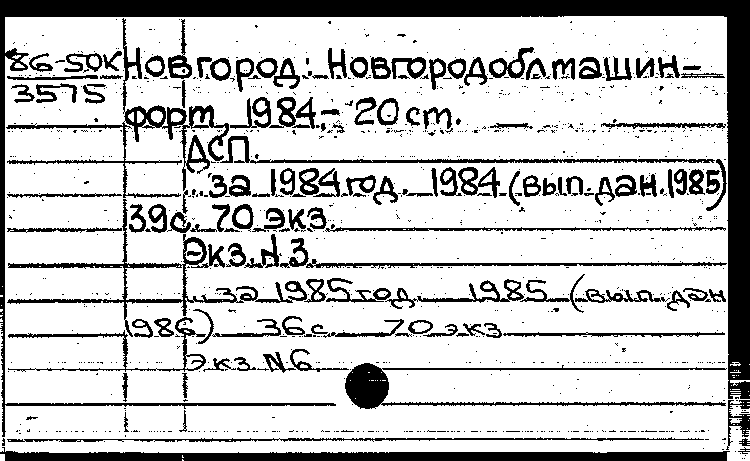 86-50К
3575
Новгород: Новгородоблмашин-
форт, 1984.- 20 см.
ДСП.
.. за 1984 год. 1984 (вып. дан. 1985)
39с. 70 экз.
Экз. N 3.
.. за 1985 год. 1985 (вып. дан
1986) 36 с. 70 экз
Экз. N 6.